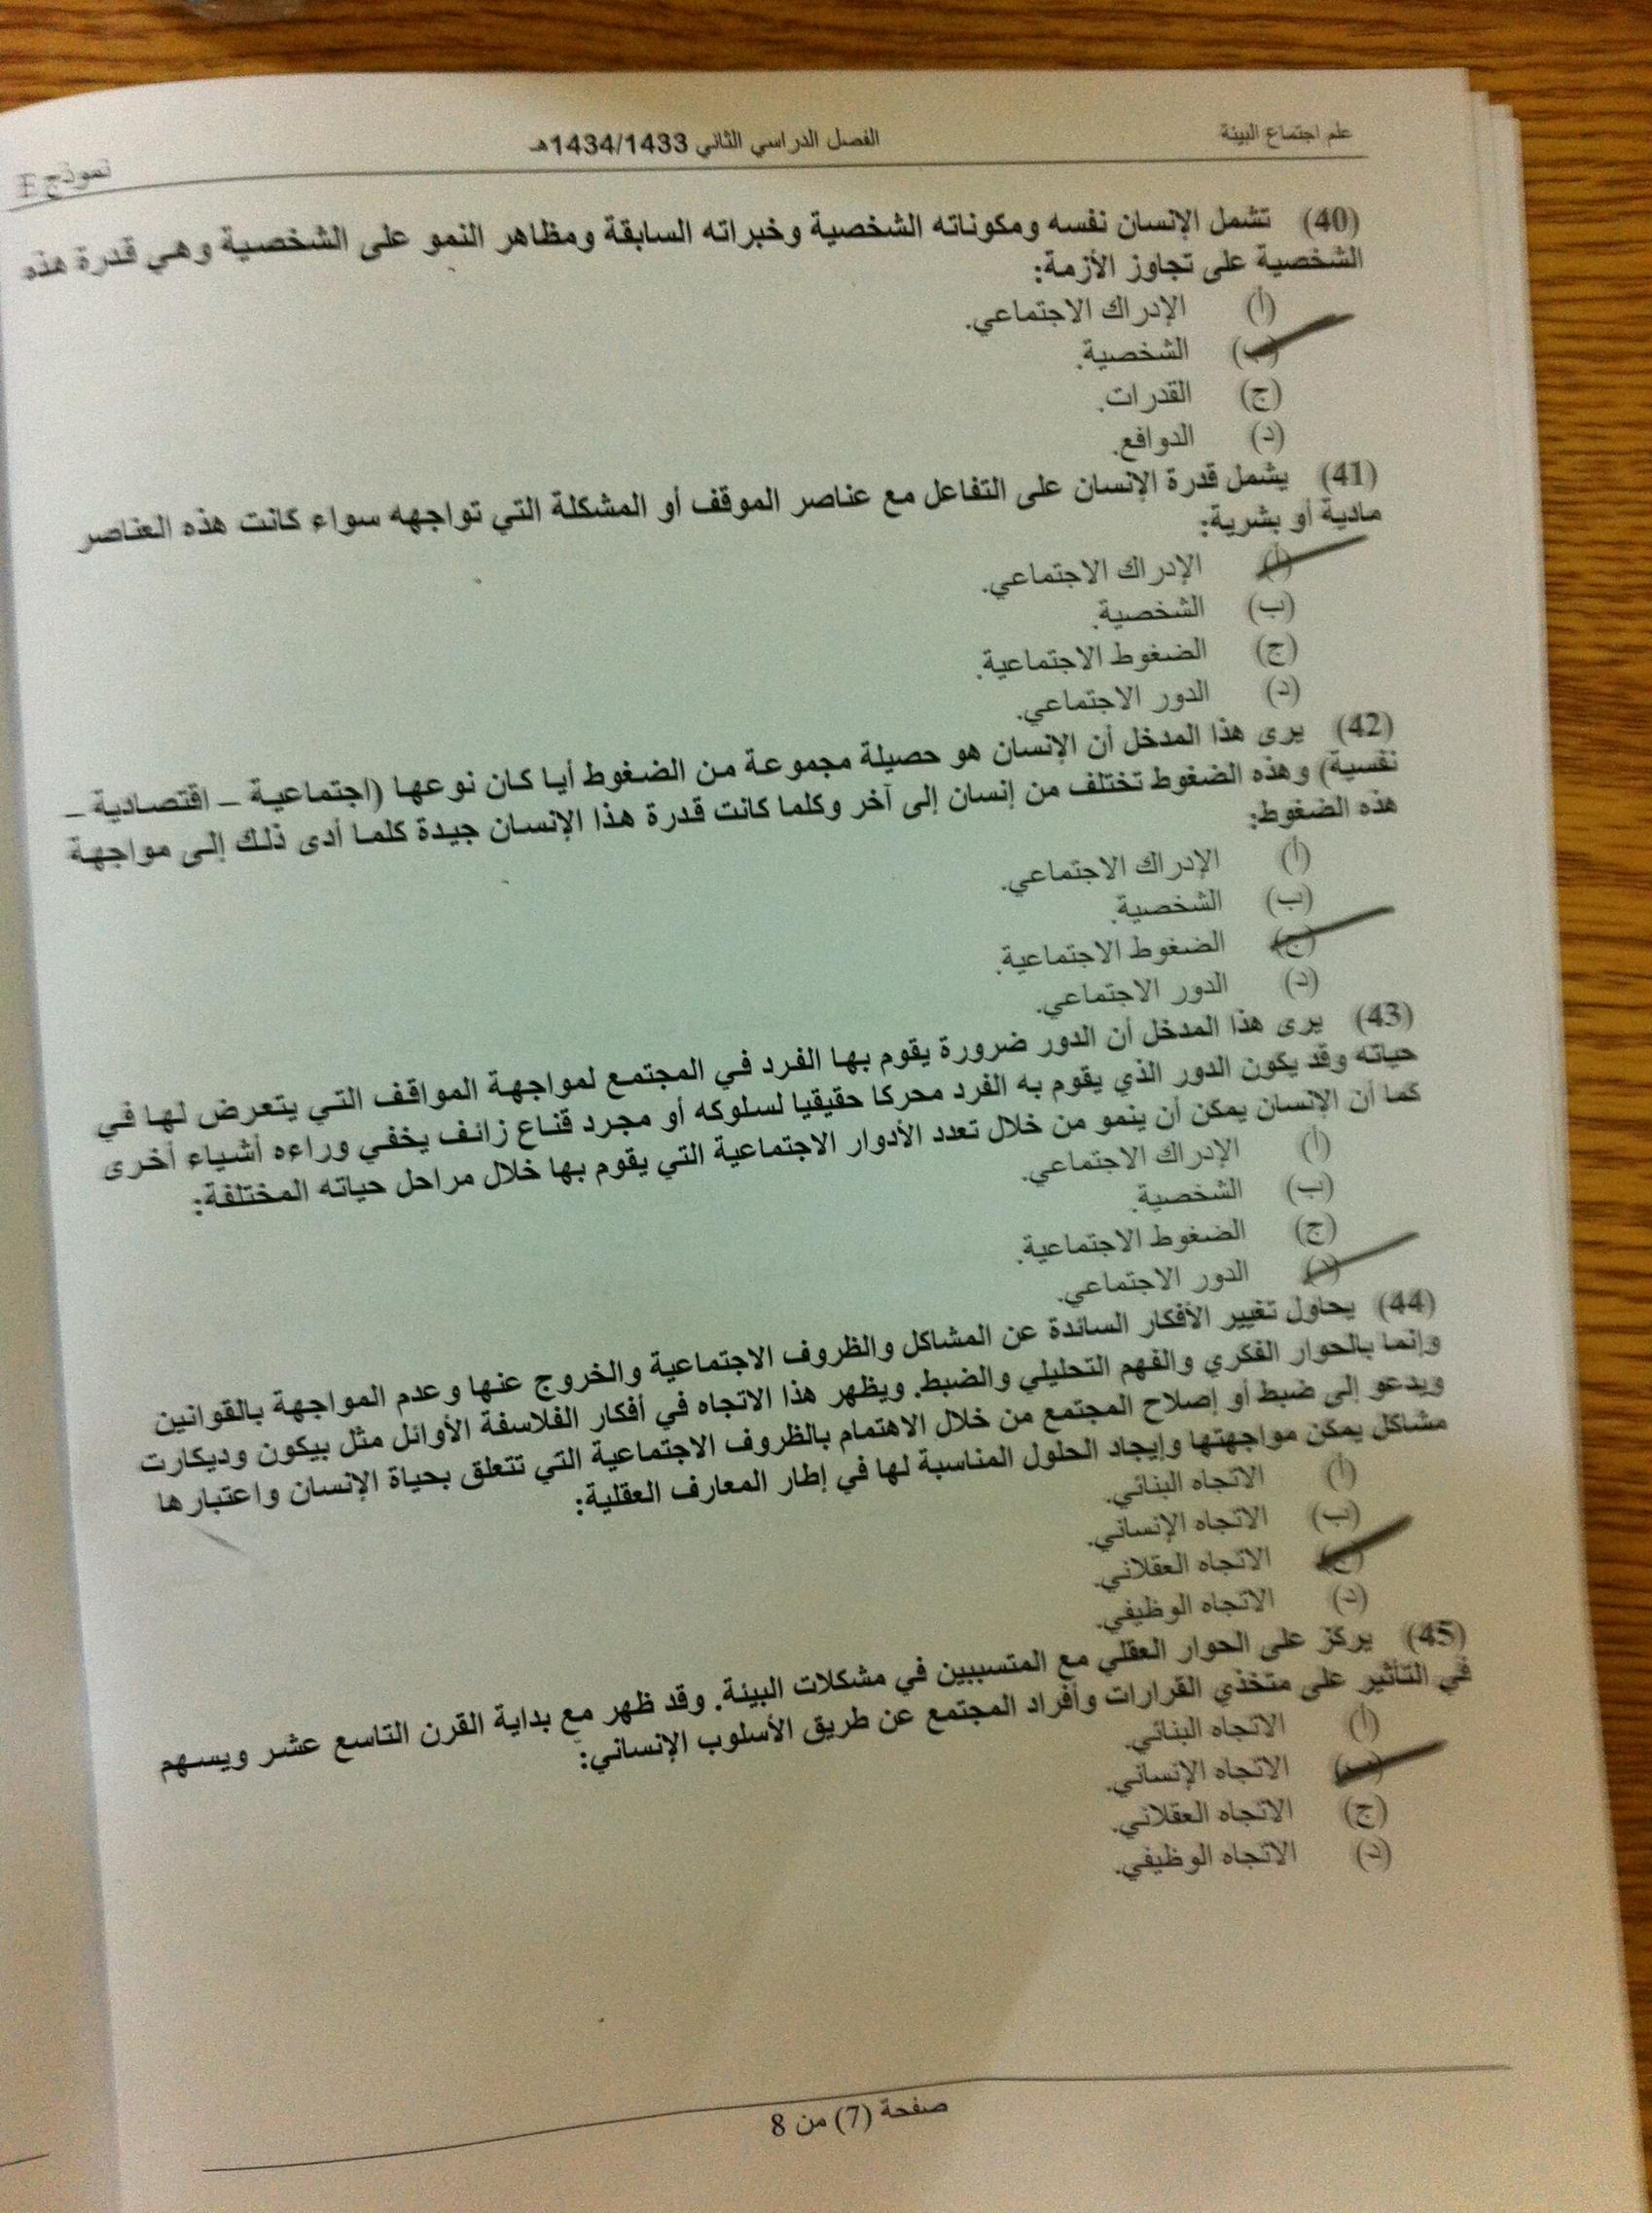 علم اجتماع البيئة
الفصل الدراسي الثاني 1434/1433هـ
نموذج E
(40) تشمل الإنسان نفسه ومكوناته الشخصية وخبراته السابقة ومظاهر النمو على الشخصية وهي قدرة هذه
الشخصية على تجاوز الأزمة:
(أ) الإدراك الاجتماعي.
(ب) الشخصية.
(ج) القدرات.
(د) الدوافع.
(41) يشمل قدرة الإنسان على التفاعل مع عناصر الموقف أو المشكلة التي تواجهه سواء كانت هذه العناصر
مادية أو بشرية:
(أ) الإدراك الاجتماعي.
(ب) الشخصية.
(ج) الضغوط الاجتماعية.
(د) الدور الاجتماعي.
(42) يرى هذا المدخل أن الإنسان هو حصيلة مجموعة من الضغوط أيا كان نوعها (اجتماعية – اقتصادية –
نفسية) وهذه الضغوط تختلف من إنسان إلى آخر وكلما كانت قدرة هذا الإنسان جيدة كلما أدى ذلك إلى مواجهة
هذه الضغوط:
(أ) الإدراك الاجتماعي.
(ب) الشخصية.
(ج) الضغوط الاجتماعية.
(د) الدور الاجتماعي.
(43) يرى هذا المدخل أن الدور ضرورة يقوم بها الفرد في المجتمع لمواجهة المواقف التي يتعرض لها في
حياته وقد يكون الدور الذي يقوم به الفرد محركا حقيقيا لسلوكه أو مجرد قناع زائف يخفي وراءه أشياء أخرى
كما أن الإنسان يمكن أن ينمو من خلال تعدد الأدوار الاجتماعية التي يقوم بها خلال مراحل حياته المختلفة:
(أ) الإدراك الاجتماعي.
(ب) الشخصية.
(ج) الضغوط الاجتماعية.
(د) الدور الاجتماعي.
(44) يحاول تغيير الأفكار السائدة عن المشاكل والظروف الاجتماعية والخروج عنها وعدم المواجهة بالقوانين
وإنما بالحوار الفكري والفهم التحليلي والضبط. ويظهر هذا الاتجاه في أفكار الفلاسفة الأوائل مثل بيكون وديكارت
ويدعو إلى ضبط أو إصلاح المجتمع من خلال الاهتمام بالظروف الاجتماعية التي تتعلق بحياة الإنسان واعتبارها
مشاكل يمكن مواجهتها وإيجاد الحلول المناسبة لها في إطار المعارف العقلية:
(أ) الاتجاه البنائي.
(ب) الاتجاه الإنساني.
(ج) الاتجاه العقلاني.
(د) الاتجاه الوظيفي.
(45) يركز على الحوار العقلي مع المتسببين في مشكلات البيئة. وقد ظهر مع بداية القرن التاسع عشر ويسهم
في التأثير على متخذي القرارات وأفراد المجتمع عن طريق الأسلوب الإنساني:
(أ) الاتجاه البنائي.
(ب) الاتجاه الإنساني.
(ج) الاتجاه العقلاني.
(د) الاتجاه الوظيفي.
صفحة (7) من 8